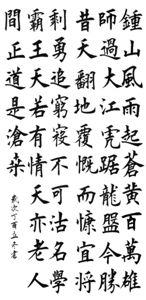 鍾山風雨起蒼黃百萬雄
師過大江虎踞龍盤今勝
昔天翻地覆慨而慷宜將
剩勇追窮寇不可沽名學
霸王天若有情天亦老人
間正道是滄桑
歲次丁酉立冬書